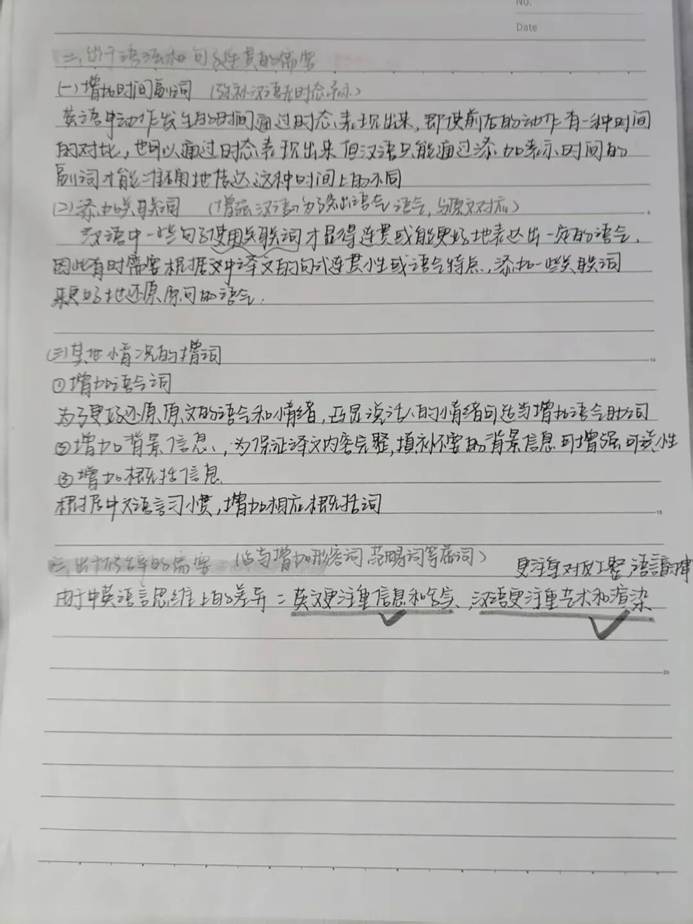 No.
Date
二、出于语法和句子连贯的需要
(一)增加时间副词 (弥补汉语无时态表示)
英语中动作发生的时间通过时态表现出来,即使前后的动作有一种时间
的对比,也可以通过时态表现出来但汉语只能通过添加表示时间的
副词才能准确地传达这种时间上的不同
(2)添加关联词 (增强汉语 语气,与原文对应)
汉语中一些句子使用关联词才显得连贯或能更好地表达出一定的语气,
因此有时需要根据文中译文的句式连贯性或语气特点,添加一些关联词
来更好地还原原句的语气.
(三)其他情况的增词
①增加语气词
为了更好还原原文的语气和情绪,凸显说话人的情绪可适当增加语气助词
②增加背景信息,为保证译文内容完整,填补必要的背景信息可增强可读性
③增加概括信息
根据中文语言习惯,增加相应概括词
三、出于修辞的需要 (适当增加形容词 副词等 词)
更注重对仗工整,语言韵律
由于中英语言思维上的差异:英文更注重信息和 、汉语更注重艺术和渲染